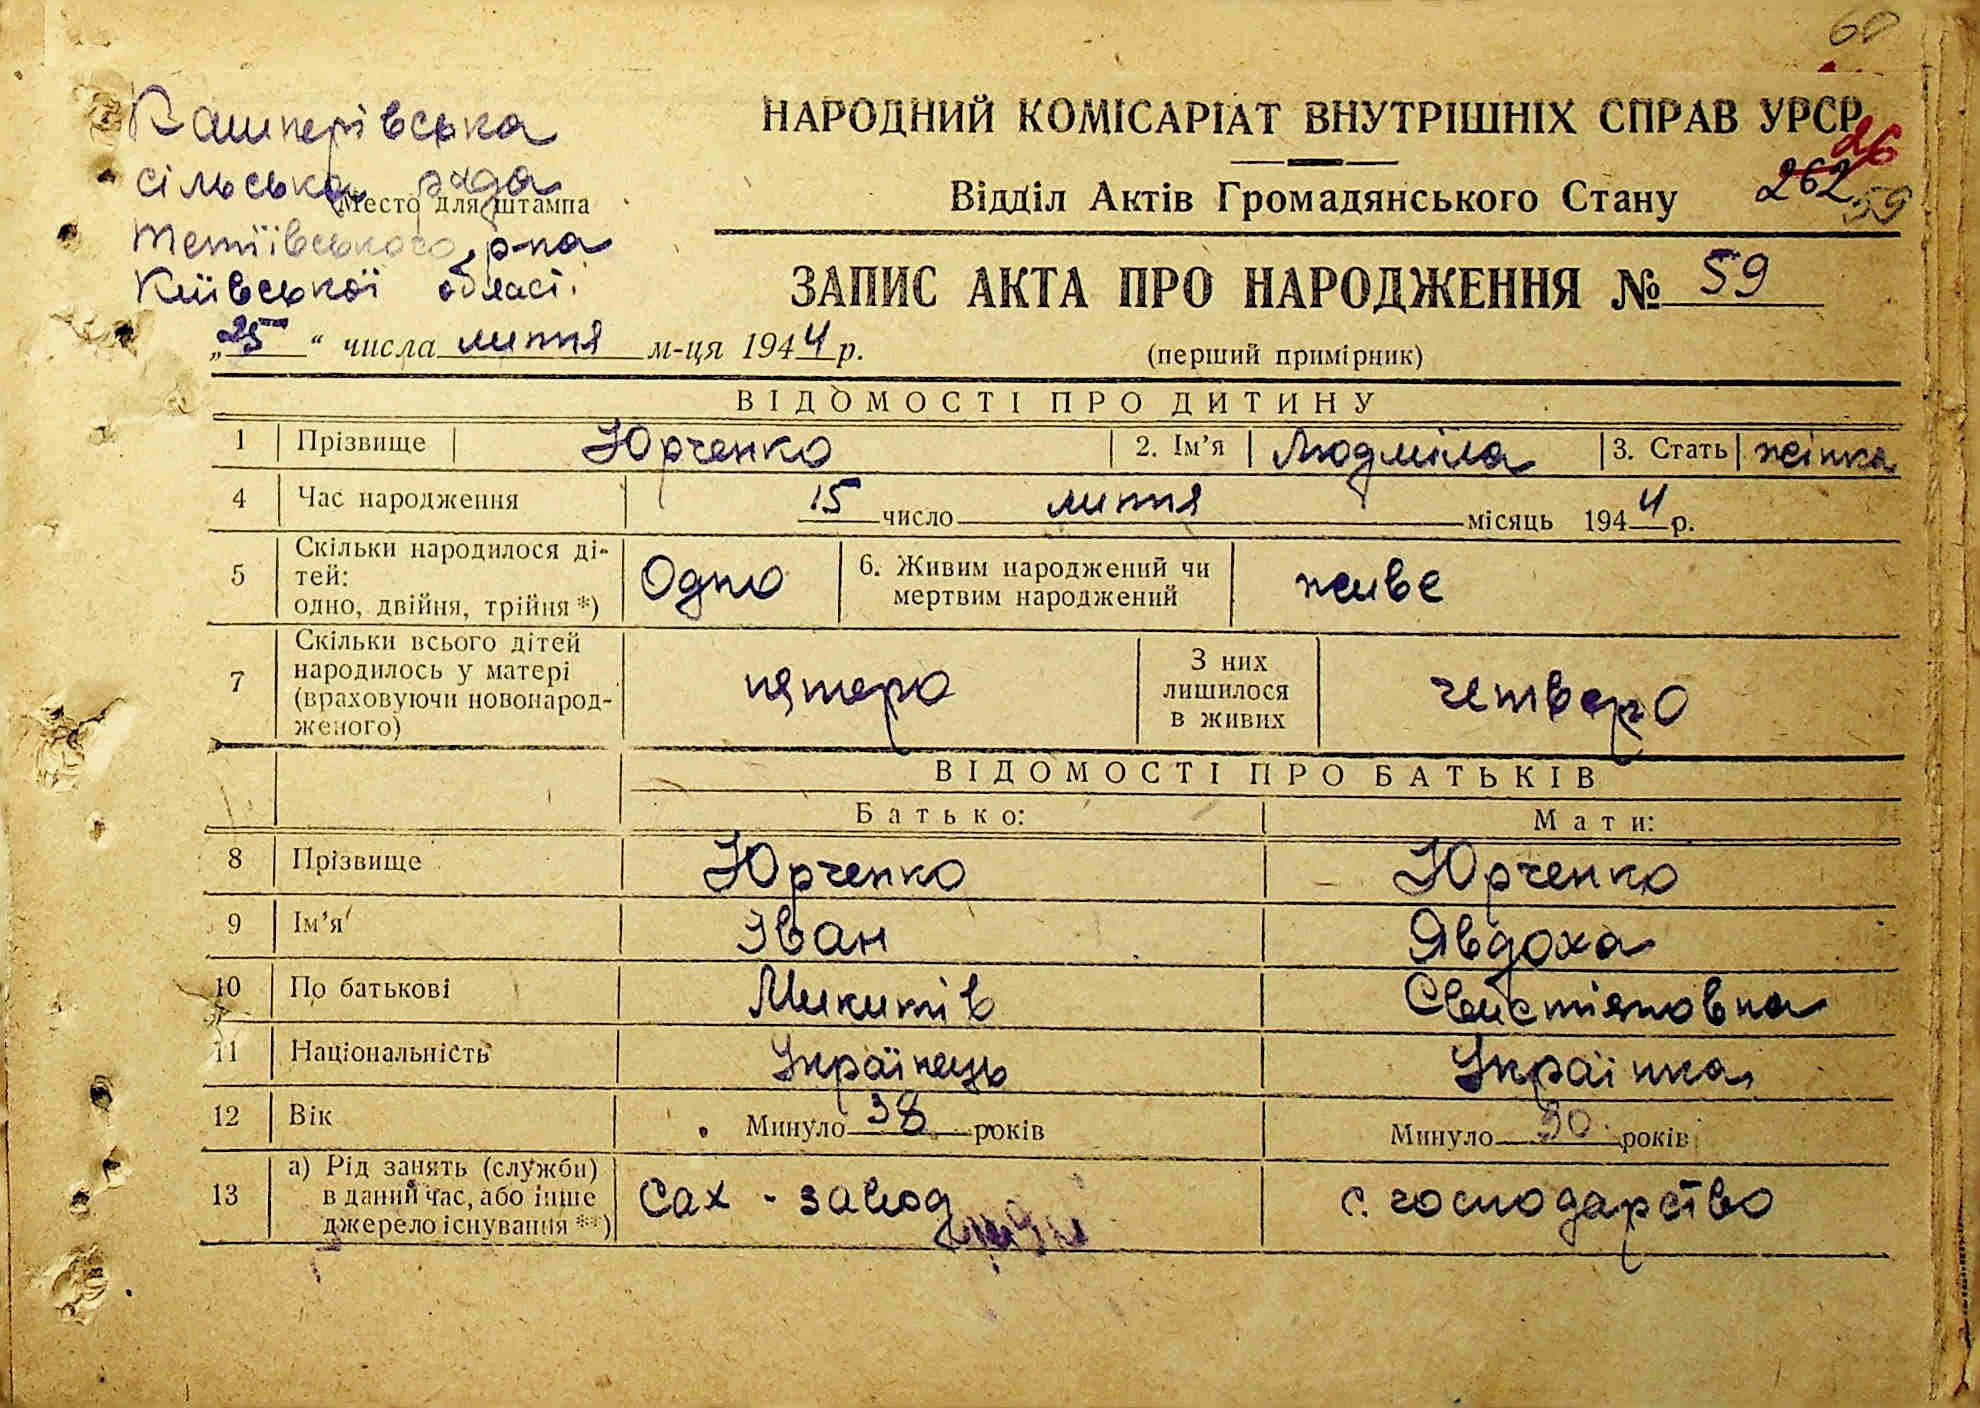 60
Кашперівська
сільська рада
Место для штампа
Тетіївського р-на
Київської області.
НАРОДНИЙ КОМІСАРІАТ ВНУТРІШНІХ СПРАВ УРСР
26
262 59
Відділ Актів Громадянського Стану
ЗАПИС АКТА ПРО НАРОДЖЕННЯ № 59
„25“ числа липня м-ця 1944 р.
(перший примірник)
ВІДОМОСТІ ПРО ДИТИНУ
1 Прізвище Юрченко 2. Ім’я Людміла 3. Стать жінка
4 Час народження 15 число липня місяць 1944 р.
5 Скільки народилося ді-
тей:
одно, двійня, трійня *) Одно 6. Живим народжений чи
мертвим народжений живе
7 Скільки всього дітей
народилось у матері
(враховуючи новонарод-
женого) пятеро З них
лишилося
в живих четверо
ВІДОМОСТІ ПРО БАТЬКІВ
Батько: Мати:
8 Прізвище Юрченко Юрченко
9 Ім’я Іван Явдоха
10 По батькові Микитів Свистіяновна
11 Національність Українець Українка
12 Вік Минуло 38 років Минуло 30 років
13 а) Рід занять (служби)
в даний час, або інше
джерело існування **) Сах - завод с. господарство